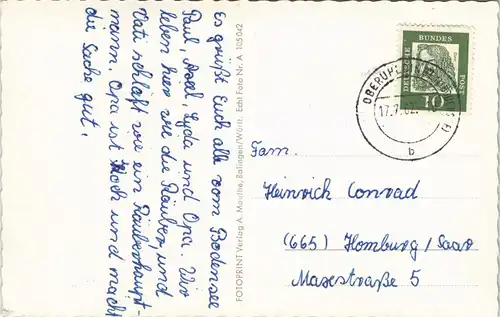 Es grüße Euch alle vom Bodensee
Paul, Axel, Lyda und Opa. Wir
leben hier wie die Räuber, und
Vati schläft wie ein Räuberhaupt-
mann. Opa ist Koch und macht
die Sache gut.
FOTOPRINT Verlag A. Mauthe, Balingen/Württ. Echt Foto Nr. A 105042
DEUTSCHE
BUNDES
POST
10
17.7.62
b
Fam.
Heinrich Conrad
(665) Homburg/Saar
Masestraße 5